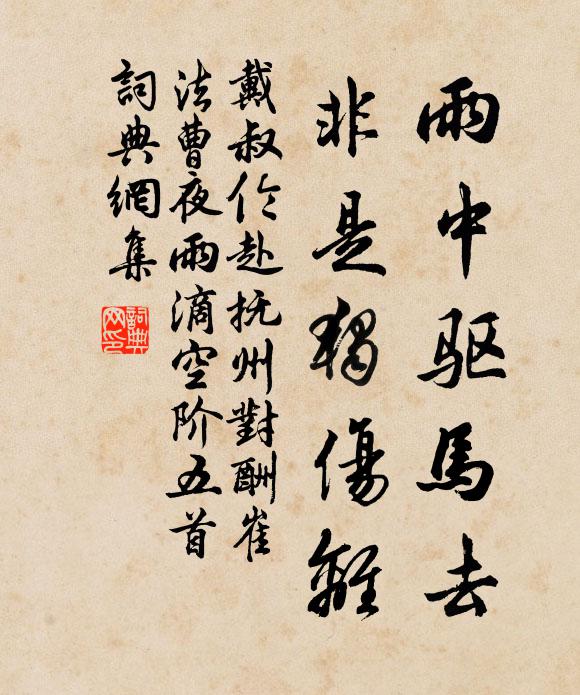 雨中驱馬去
非是獨傷離
戴叔伦赴抚州對酬崔
法曹夜雨滴空阶五首
詞典網集
詞典
网印